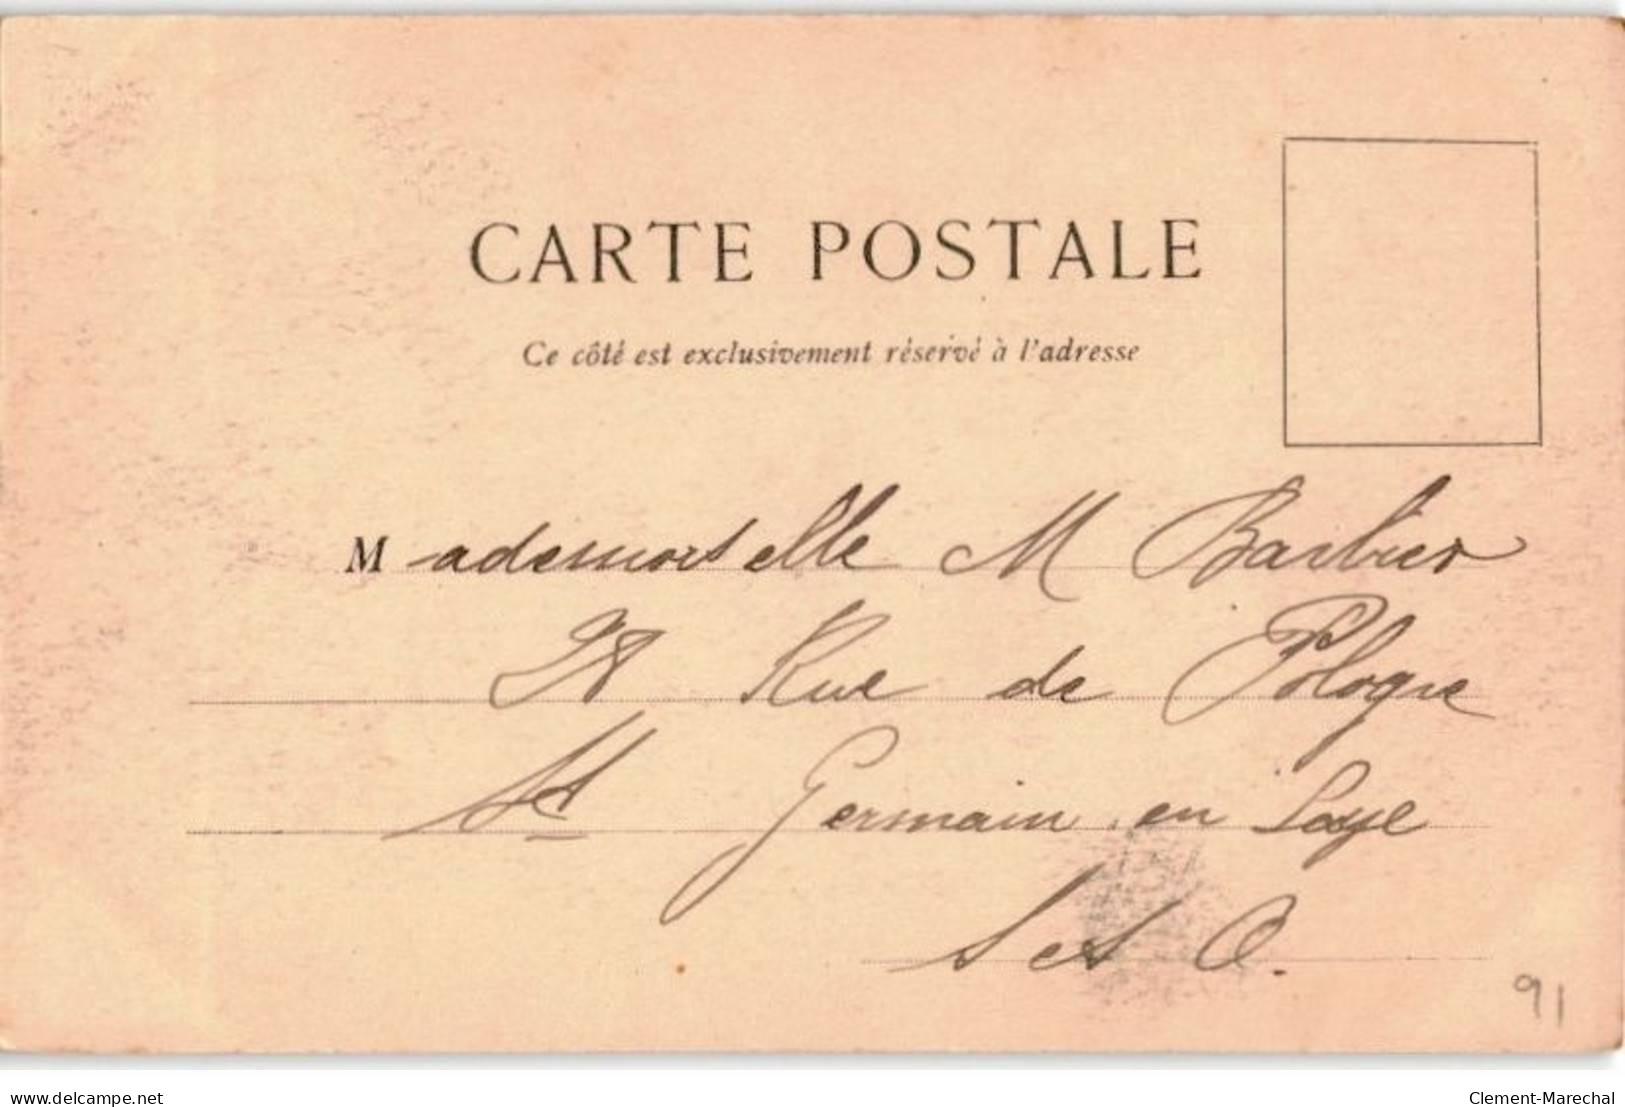 CARTE POSTALE
Ce côté est exclusivement réservé à l'adresse
Mademoiselle M Barbier
Rue de Pologne
St Germain en Laye
S et O.
91
delcampe.net
Clement-Marechal